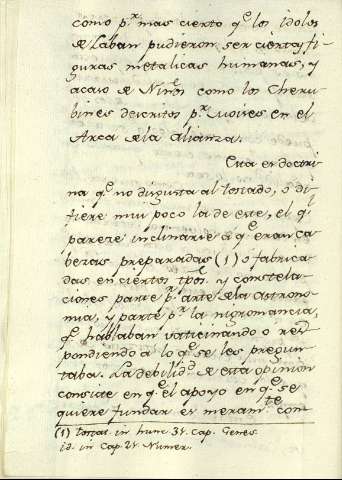 como p.r mas cierto q.e los idolos
de Laban pudieron ser ciertas fi-
guras metalicas humanas, y
acaso de Niños como los Cheru-
bines descritos p.r Moises en el
Arca de la alianza.
Esta es doctri-
na q.e no disgusta al tostado, o di-
fiere mui poco la de este, el q.e
parece inclinarse a q.e eran ca-
bezas preparadas (1) o fabrica-
das en ciertos tpos. y constela-
ciones parte p.r arte de la astrono-
mia, y parte p.r la nigromancia,
q.e hablaban vaticinando o res-
pondiendo a lo q.e se les pregun-
taba. La debilid.d de esta opinion
consiste en q.e el apoyo en q.e se
quiere fundar es meram.te con-
(1) tostat. in hunc 31. Cap. Genes.
id. in Cap. 21. Numer.